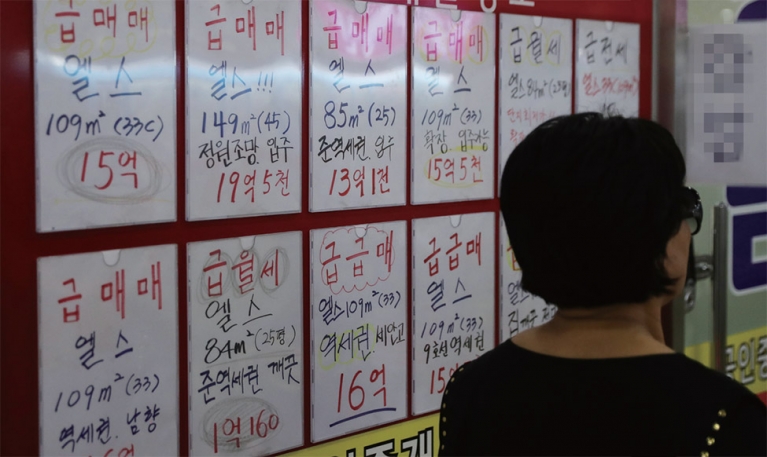 급매매
엘스
109m²(33C)
15억
급매매
엘스!!!
149m²(45)
정원조망, 입주
19억 5천
급매매
엘스
85m²(25)
준역세권, 입주
13억 1전
급매매
엘스
109m²(33)
확장, 입주가능
15억 5천
급월세
엘스84m²(25평)
급전세
급매매
엘스
109m²(33)
역세권, 남향
급월세
엘스
84m²(25평)
준역세권 깨끗
1억 160
급급매
엘스109m²(33)
역세권, 세안고
16억
급급매
엘스
109m²(33)
9호선역세권
엘스
중개
공인중